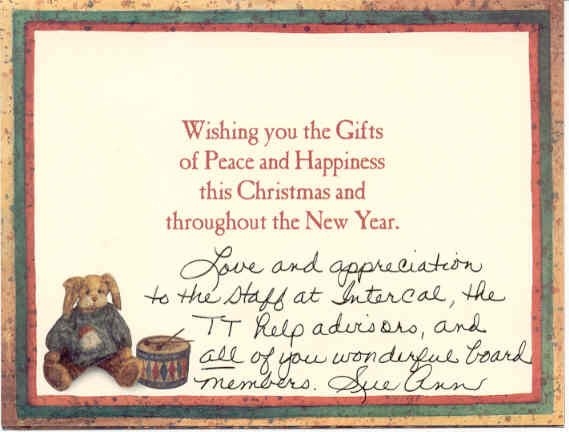 Wishing you the Gifts
of Peace and Happiness
this Christmas and
throughout the New Year.
Love and appreciation
to the Staff at Intercal, the
TT help advisors, and
all of you wonderful board
members. Sue Ann